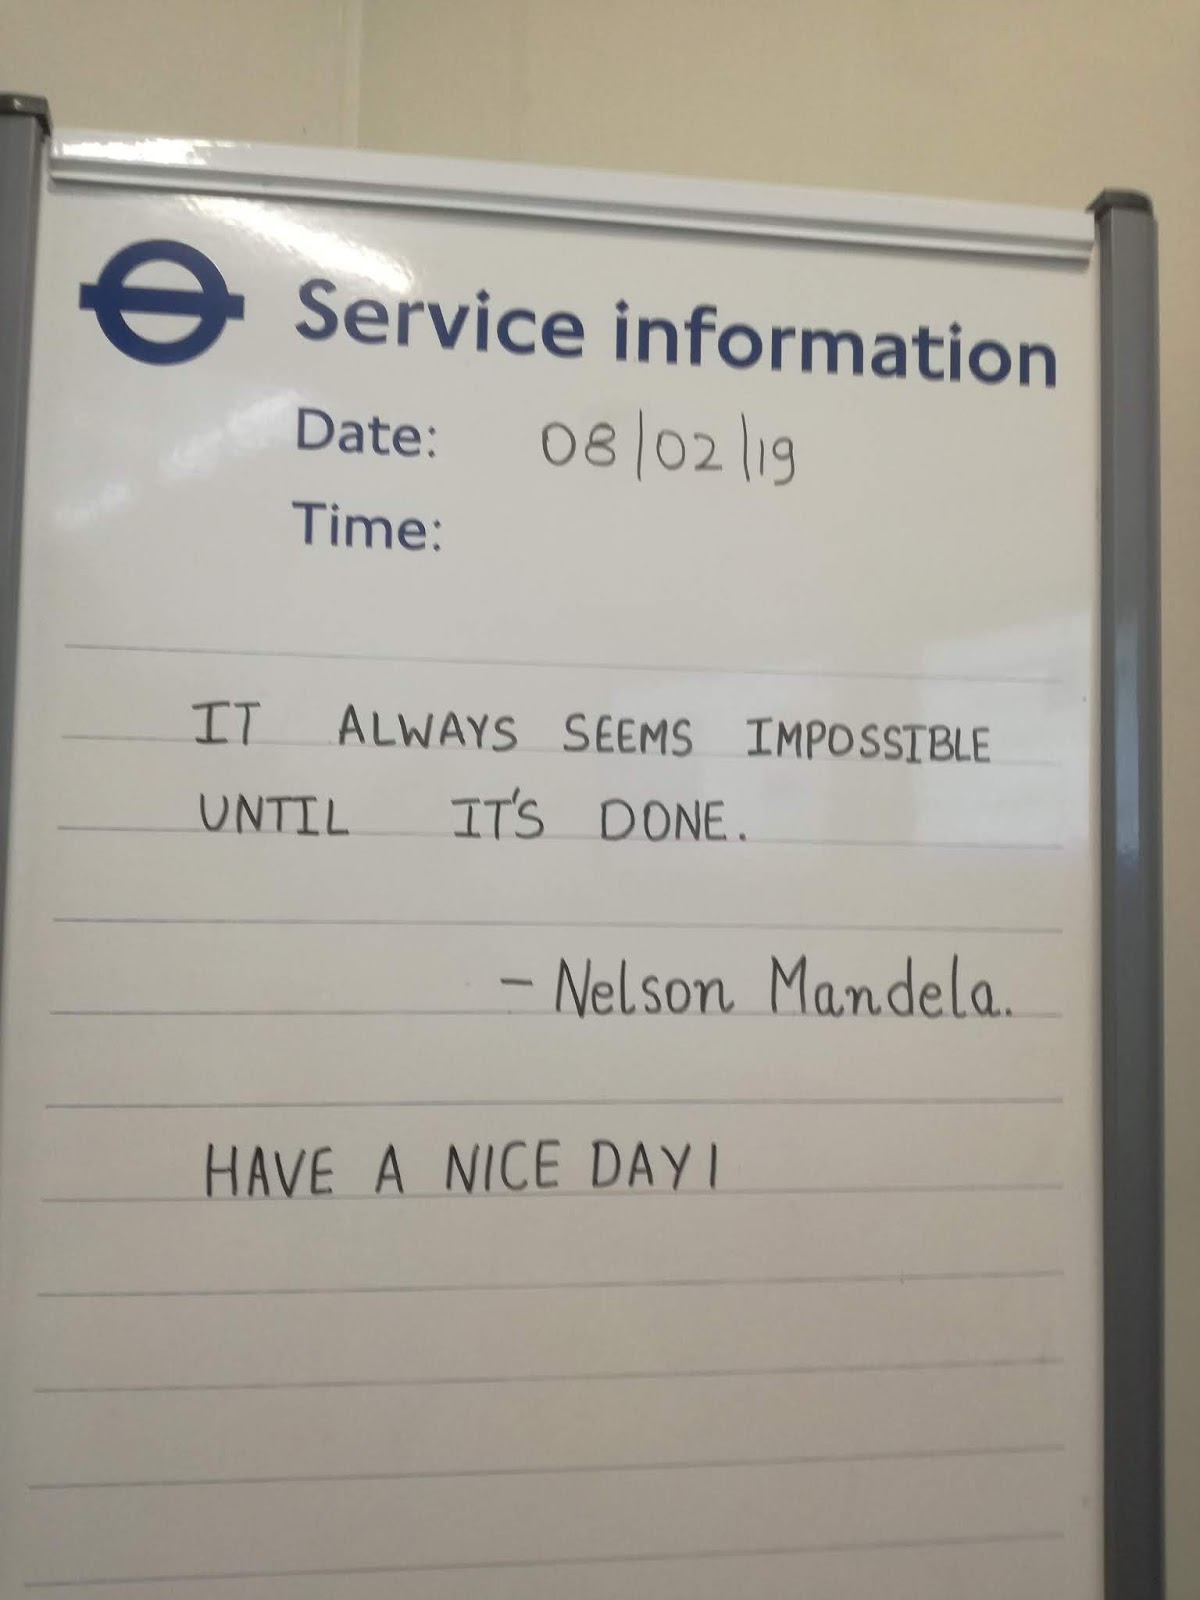 Service information
Date: 08/02/19
Time:
IT ALWAYS SEEMS IMPOSSIBLE
UNTIL IT'S DONE.
- Nelson Mandela.
HAVE A NICE DAY!